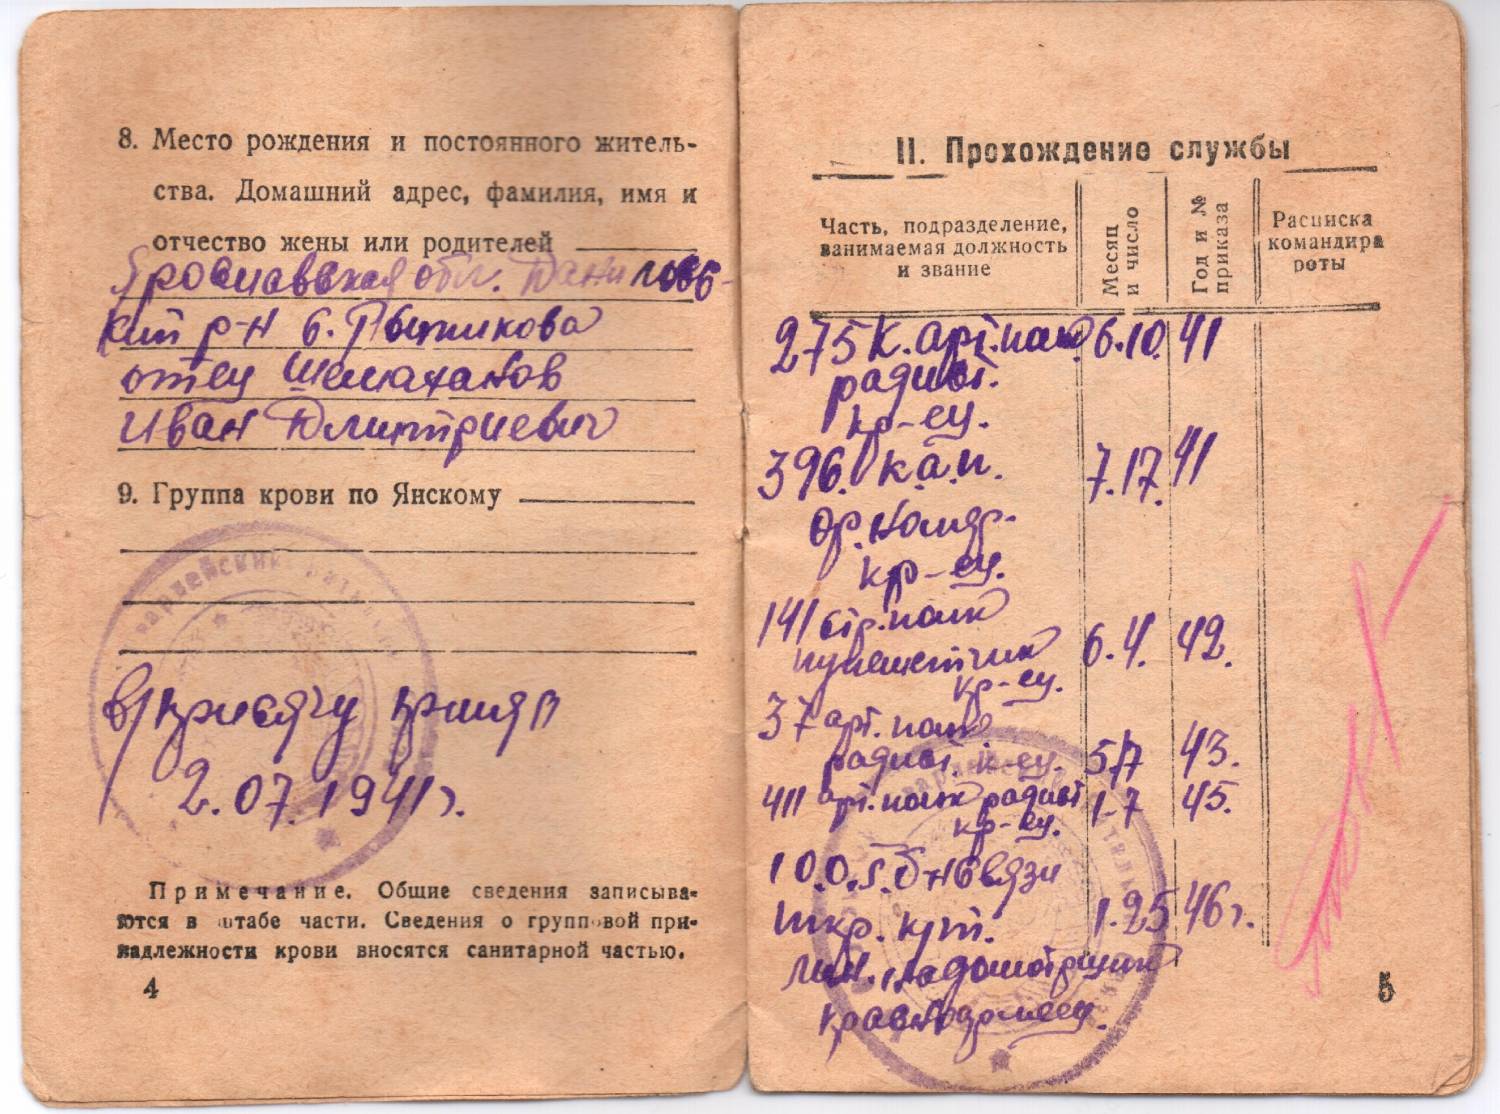 8. Место рождения и постоянного житель-
ства. Домашний адрес, фамилия, имя и
отчество жены или родителей
Ярославская обл. Даниловс-
кий р-н
отец Шемаханов
Иван Дмитриевич
9. Группа крови по Янскому
гвардейский
в/присягу принял
2.07.1941г.
Примечание. Общие сведения записыва-
ются в штабе части. Сведения о групповой при-
надлежности крови вносятся санитарной частью.
4
II. Прохождение службы
Часть, подразделение,
занимаемая должность
и звание
Месяц
и число
Год и №
приказа
Расписка
командира
роты
275 к. арт. полк 6.10. 41
радист.
кр-ец.
396. к.а.п. 7.17. 41
ор. номер.
кр-ец.
141 стр. полк
пулеметчик 6.4. 42.
кр-ец.
37 арт. полк
радист. к-ец. 5.7 43.
411 арт. полк радист 1-7 45.
кр-ец.
10.О.Г. б-н связи
1.25 46г.
лин. надсмотрщик
красноармеец.
5